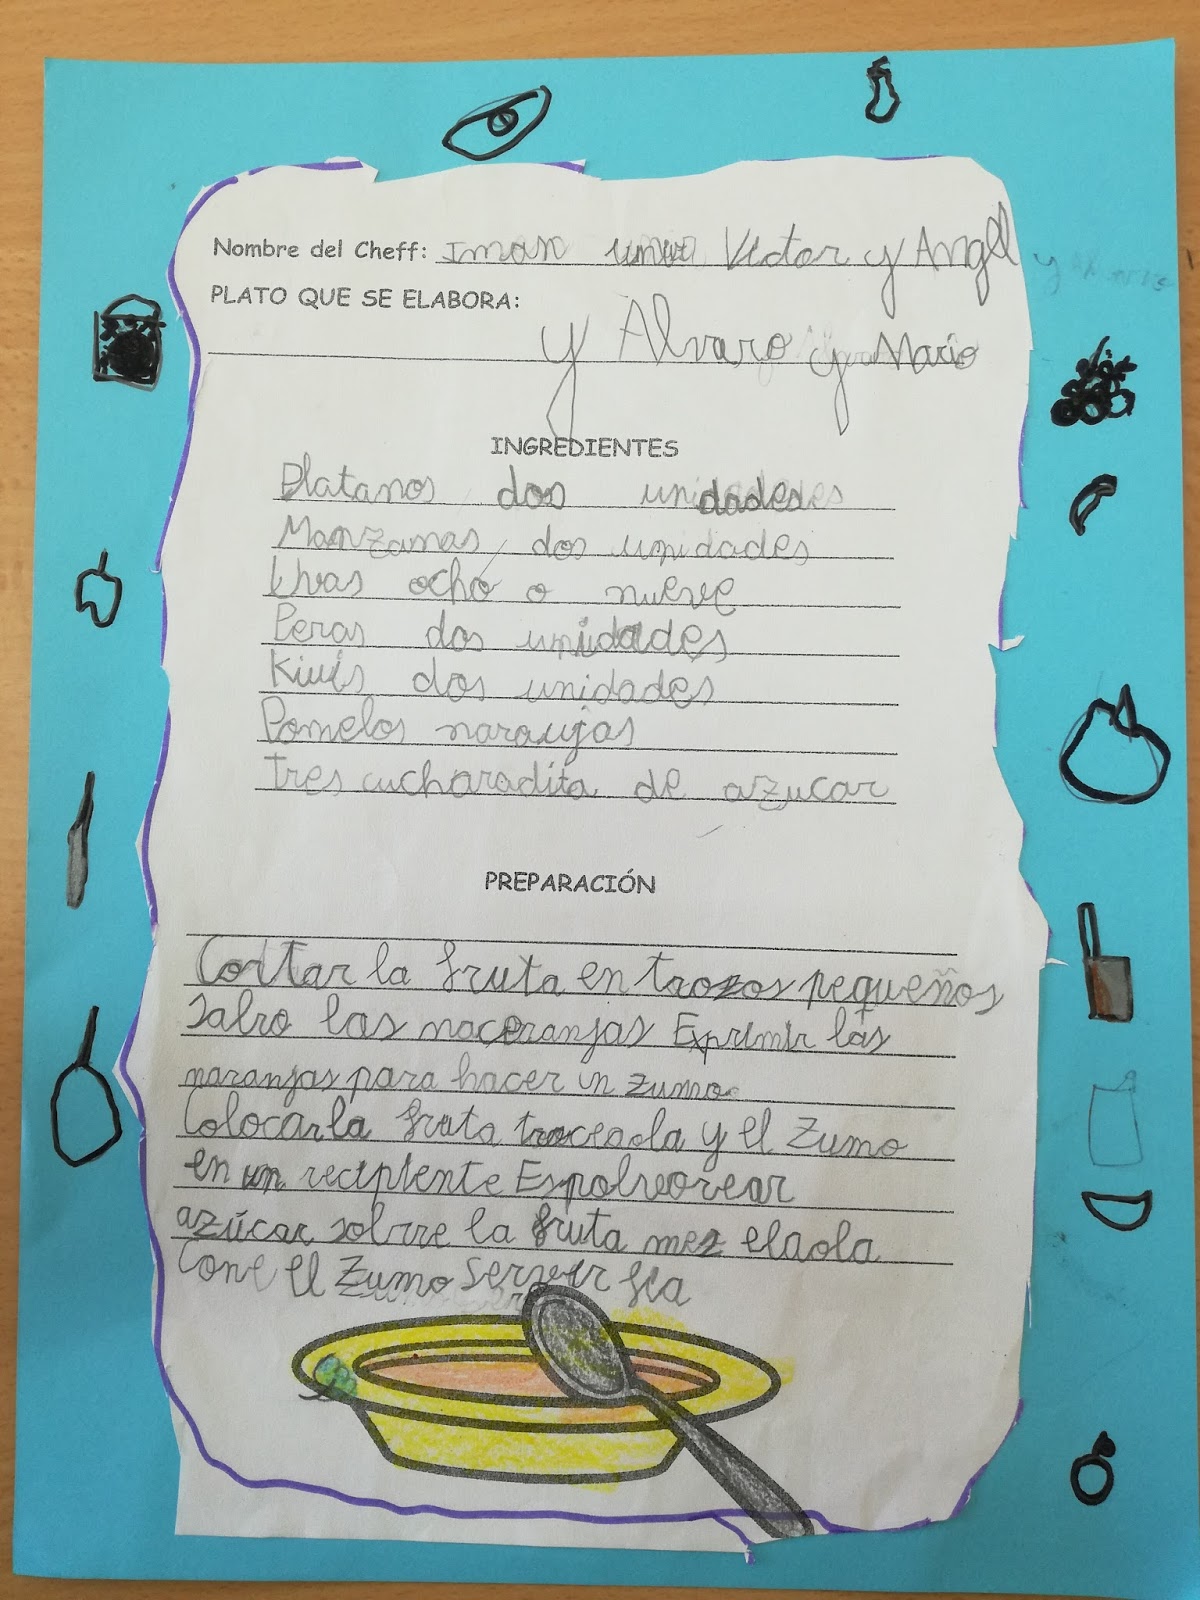 Nombre del Cheff: Iman Victor y Angel y
PLATO QUE SE ELABORA:
y Alvaro y Mario
INGREDIENTES
Platanos dos unidades
Manzanas dos unidades
Uvas ocho o nueve
Peras dos unidades
Kiwis dos unidades
Pomelos naraujas
Tres cucharadita de azucar
PREPARACIÓN
Cortar la fruta en trozos pequeños
Salvo las naceranjas Exprimir las
naranjas para hacer un zumo.
Colocar la fruta troceada y el Zumo
en un recipiente Espolvorear
azúcar sobre la fruta mezelada
Con el Zumo Servir fía